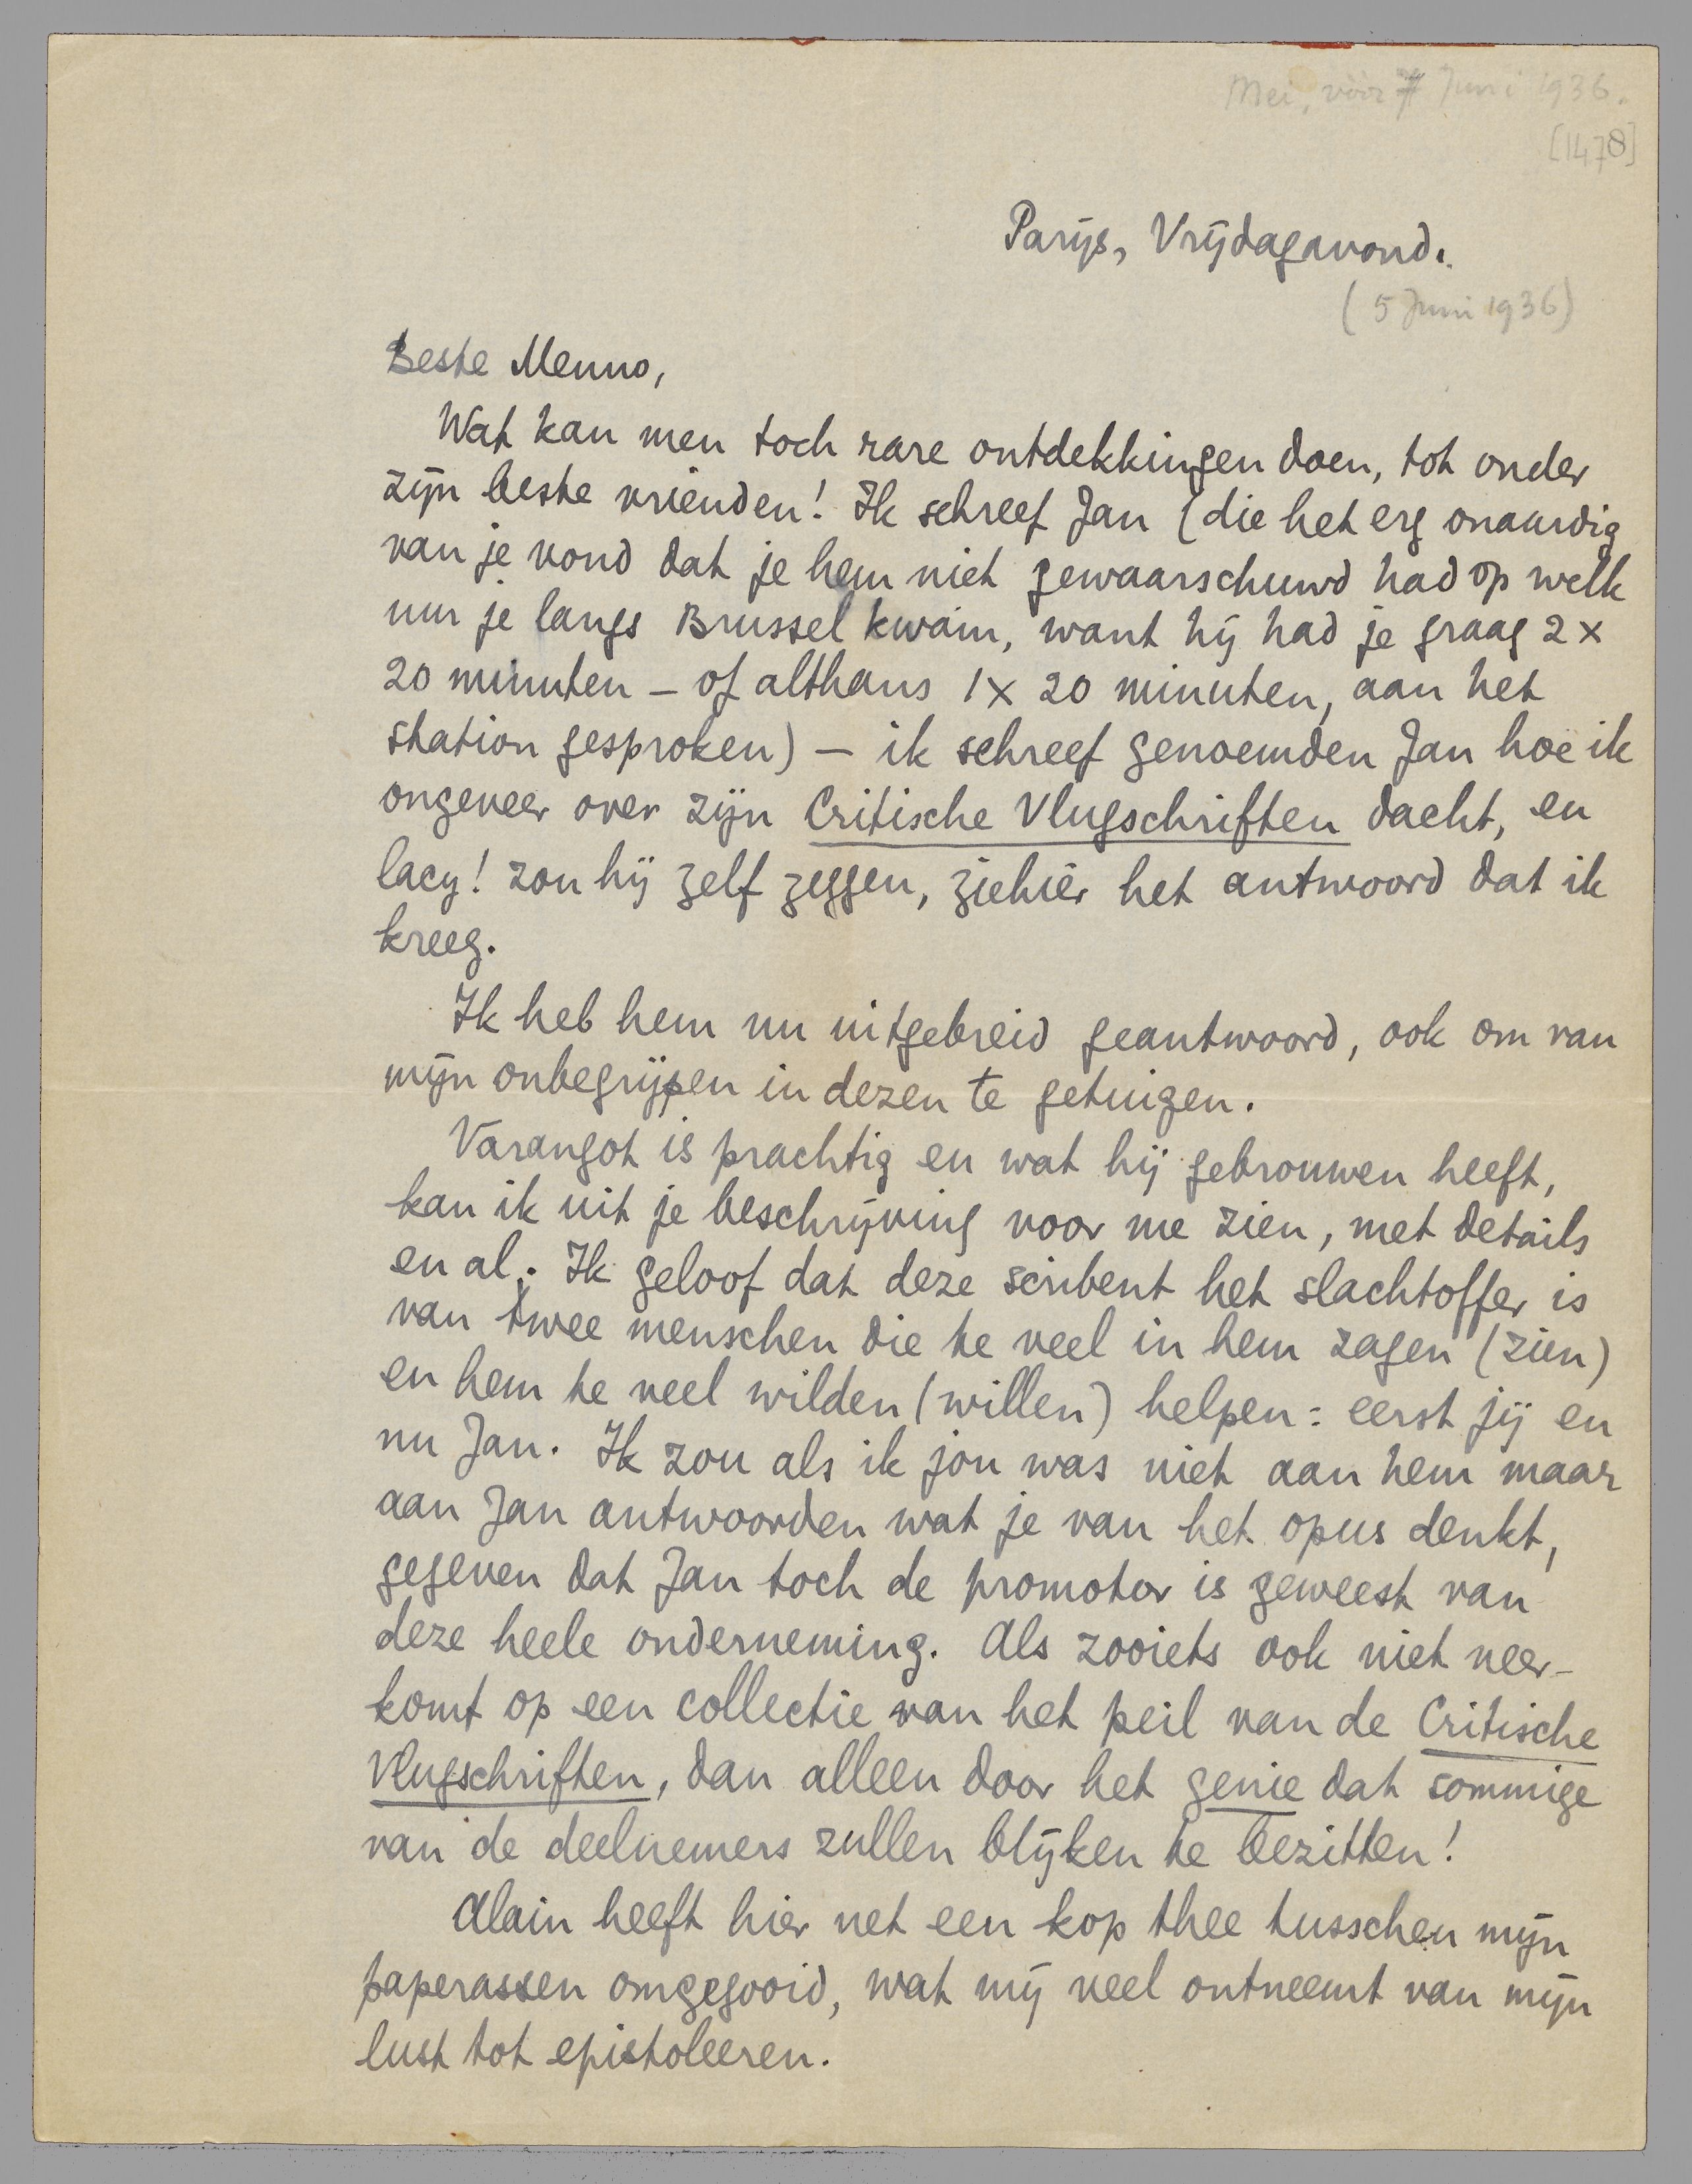 Mei, vóór 7 Juni 1936.
[1478]
Parijs, Vrijdagavond.
(5 Juni 1936)
Beste Menno,
Wat kan men toch rare ontdekkingen doen, tot onder
zijn beste vrienden! Ik schreef Jan (die het erg onaardig
van je vond dat je hem niet gewaarschuwd had op welk
uur je langs Brussel kwam, want hij had je graag 2 x
20 minuten - of althans 1 x 20 minuten, aan het
station gesproken) - ik schreef genoemden Jan hoe ik
ongeveer over zijn Critische Vlugschriften dacht, en
lacy! zou hij zelf zeggen, ziehier het antwoord dat ik
kreeg.
Ik heb hem nu uitgebreid geantwoord, ook om van
mijn onbegrijpen in dezen te getuigen.
Varangot is prachtig en wat hij gebrouwen heeft,
kan ik uit je beschrijving voor me zien, met details
en al. Ik geloof dat deze scribent het slachtoffer is
van twee menschen die te veel in hem zagen (zien)
en hem te veel wilden (willen) helpen: eerst jij en
nu Jan. Ik zou als ik jou was niet aan hem maar
aan Jan antwoorden wat je van het opus denkt,
gegeven dat Jan toch de promotor is geweest van
deze heele onderneming. Als zooiets ook niet neer-
komt op een collectie van het peil van de Critische
Vlugschriften, dan alleen door het genie dat sommige
van de deelnemers zullen blijken te bezitten!
Alain heeft hier net een kop thee tusschen mijn
paperassen omgegooid, wat mij veel ontneemt van mijn
lust tot epistoleeren.